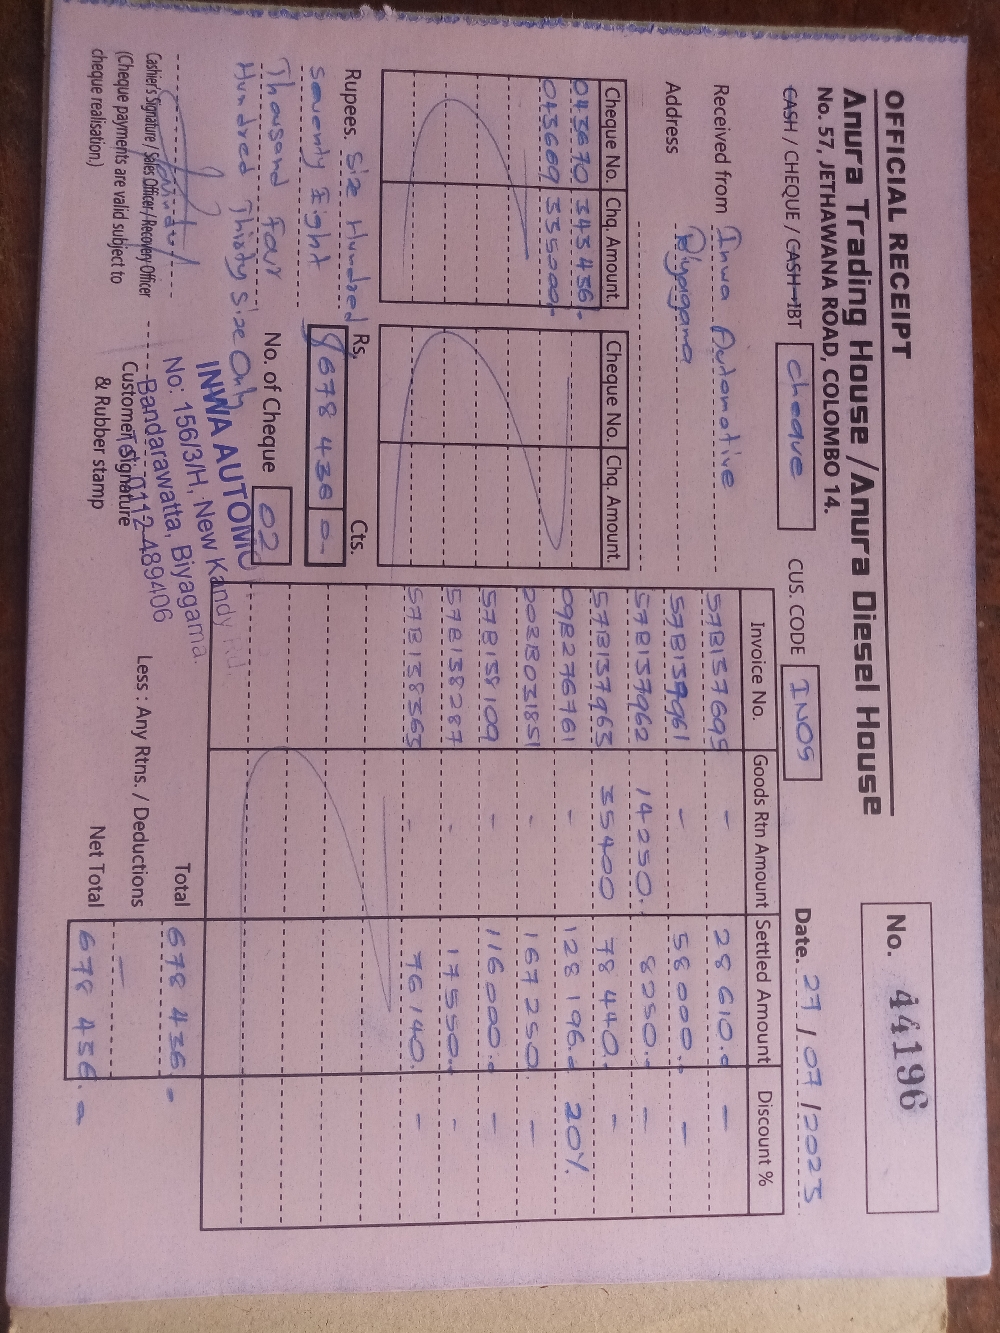 OFFICIAL RECEIPT
No. 44196
Anura Trading House / Anura Diesel House
No. 57, JETHAWANA ROAD, COLOMBO 14.
CASH / CHEQUE / CASH IBT cheque CUS. CODE IN05 Date. 27 / 07 / 2023
Received from Inwa Automotive
Address Biyagama
Cheque No. Chq. Amount. Cheque No. Chq. Amount.
043670 343 436.-
043669 335000.-
Invoice No. Goods Rtn Amount Settled Amount Discount %
57B137695 - 28 610.- -
57B137961 - 58 000.- -
57B137962 14250. 8250.- -
57B137963 35400 78 440. -
09B276761 - 128 196.- 20%
003B03185 - 167 250. -
57B138109 - 116 000.- -
57B138287 - 17 550.- -
57B138363 - 76 140. -
Rupees. Six Hundred
seventy Eight
Thousand Four
Hundred Thirty Six Only
Rs. Cts.
678 436 0-
No. of Cheque 02
INWA AUTOMO
No: 156/3/H, New Kandy Rd,
Bandarawatta, Biyagama.
Tel: 0112-489406
Cashier's Signature / Sales Officer / Recovery Officer
(Cheque payments are valid subject to
cheque realisation.)
Customer Signature
& Rubber stamp
Total 678 436.-
Less : Any Rtns. / Deductions -
Net Total 678 436.-